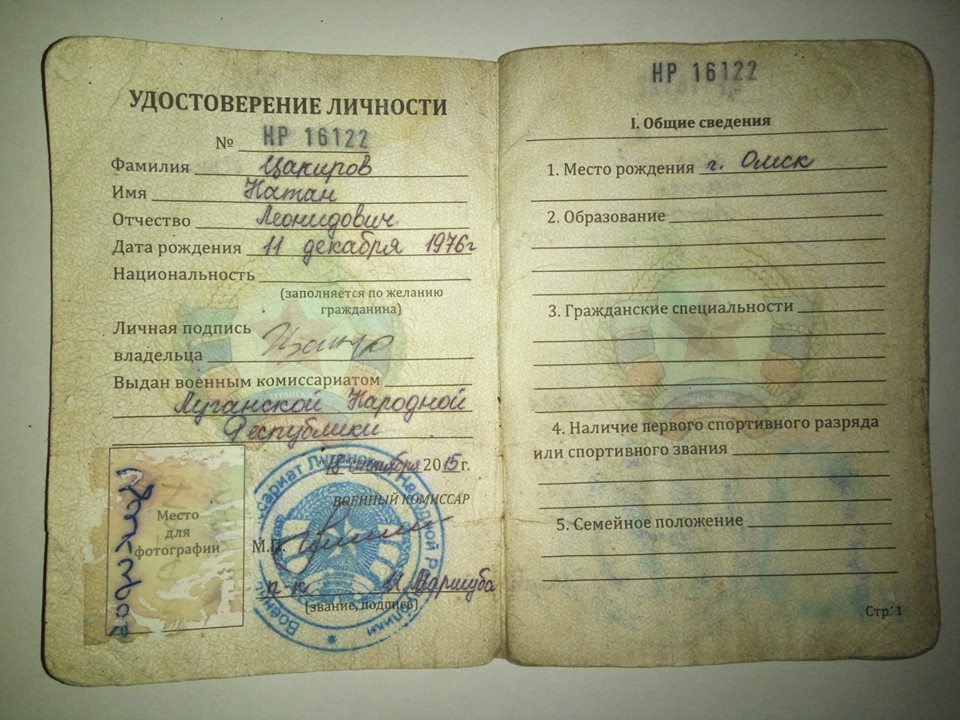 УДОСТОВЕРЕНИЕ ЛИЧНОСТИ
№ НР 16122
Фамилия Цакиров
Имя Натан
Отчество Леонидович
Дата рождения 11 декабря 1976г
Национальность
(заполняется по желанию
гражданина)
Личная подпись
владельца
Выдан военным комиссариатом
Луганской Народной
Республики
15 сентября 2015 г.
ВОЕННЫЙ КОМИССАР
Место
для
фотографии
М.П.
п-к
(звание, подпись)
НР 16122
I. Общие сведения
1. Место рождения г. Омск
2. Образование
3. Гражданские специальности
4. Наличие первого спортивного разряда
или спортивного звания
5. Семейное положение
Стр. 1